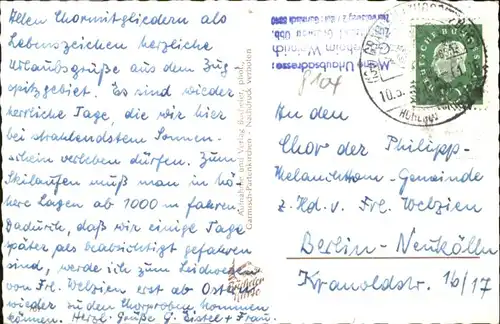 Allen Chormitgliedern als
Lebenszeichen herzliche
Urlaubsgrüße aus dem Zug-
spitzgebiet. Es sind wieder
herrliche Tage, die wir hier
bei strahlendstem Sonnen-
schein verleben dürfen. Zum
Skilaufen muß man in hö-
here Lagen ab 1000 m fahren.
Dadurch, daß wir einige Tage
später als beabsichtigt gefahren
sind, werde ich zum Leidwesen
von Frl. Welzien erst ab Ostern
wieder zu den Chorproben kommen
können. Herzl. Grüße G. Zistel + Frau.
Aufnahme und Verlag
Garmisch-Partenkirchen Nachdruck verboten
Meine Urlaubsadresse:
DEUTSCHE BUNDESPOST
An den
Chor der Philipp-
Melanchthon-Gemeinde
z. Hd. v. Frl. Welzien
Berlin-Neukölln
Kranoldstr. 16/17